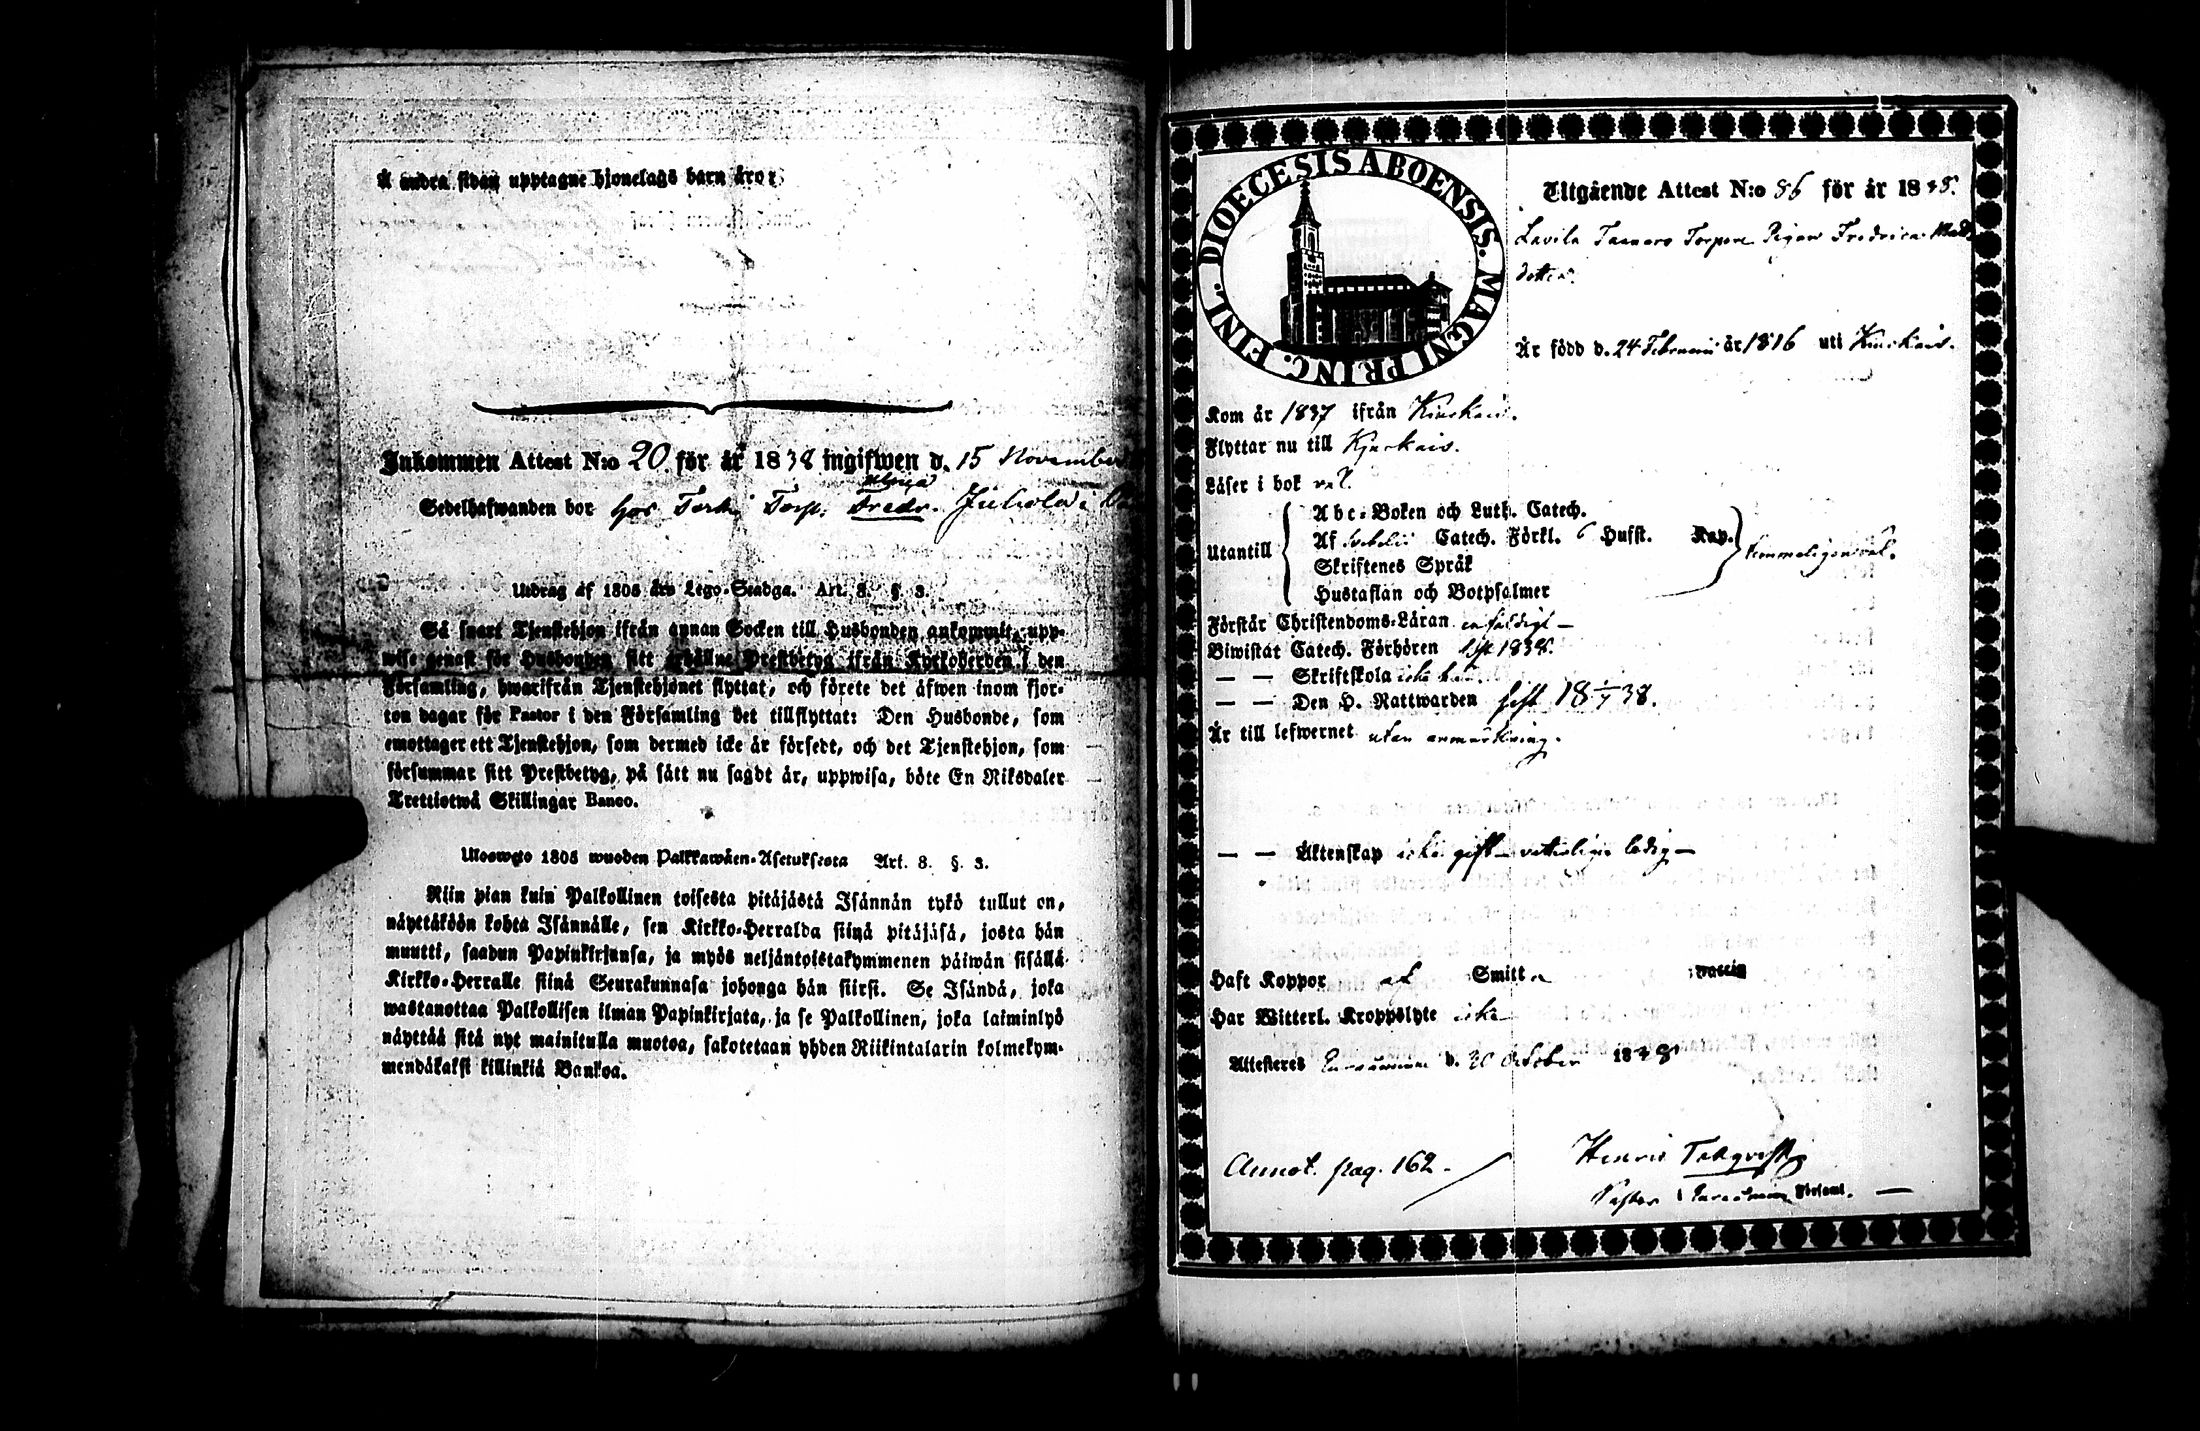 Å andra sidan upptagne hjonelags barn äro:
Inkommen Attest N:o 20 för år 1838 ingifwen d. 15 November
Ulrica
Sedelhafwanden bor hos Torp. Fredr. Juhola i
Utdrag af 1805 års Lego-Stadga. Art. 8. § 3.
Så snart Tjenstehjon ifrån annan Socken till Husbonden ankommit, upp-
wise genast för Husbonden sitt erhållne Prestbetyg ifrån Kyrkoherden i den
Församling, hwarifrån Tjenstehjonet flyttat, och förete det äfwen inom fjor-
ton dagar för Pastor i den Församling det tillflyttat: Den Husbonde, som
emottager ett Tjenstehjon, som dermed icke är försedt, och det Tjenstehjon, som
försummar sitt Prestbetyg, på sätt nu sagdt är, uppwisa, böte En Riksdaler
Trettiotwå Skillingar Banco.
Ulosweto 1805 wuoden Palkkawäen-Asetuksesta Art. 8. § 3.
Niin pian kuin Palkollinen toisesta pitäjästä Isännän tykö tullut on,
näyttäköön kohta Isännälle, sen Kirkko-Herralda siinä pitäjäsä, josta hän
muutti, saadun Papinkirjansa, ja myös neljäntoistakymmenen päiwän sisällä
Kirkko-Herralle siinä Seurakunnasa johonga hän siirsi. Se Isändä, joka
wastanottaa Palkollisen ilman Papinkirjata, ja se Palkollinen, joka laiminlyö
näyttää sitä nyt mainitulla muotoa, sakotetaan yhden Riikintalarin kolmekym-
mendäkaksi killinkiä Bankoa.
DIOECESIS ABOENSIS. MAGNI PRINC. FINL.
Utgående Attest N:o 86 för år 1838.
Lavila Torpare Pigan Fredrica
dotter.
Är född d. 24 Februarii år 1816 uti Kiukais.
Kom år 1837 ifrån Kiukais.
Flyttar nu till Kjukais.
Läser i bok väl.
Abc-Boken och Luth. Catech.
Utantill Af Svebelii Catech. Förkl. 6 Hufst. Kap. temmeligen väl.
Skriftenes Språk
Hustaflan och Botpsalmer
Förstår Christendoms-Läran enfaldigt —
Biwistat Catech. Förhören sist 1838.
— — Skriftskola icke här.
— — Den H. Nattwarden sist 18 1/7 38.
Är till lefwernet utan anmärkning.
— — Äktenskap icke gift — veterligen ledig —
Haft Koppor af Smitta natti
Har Witterl. Kroppslyte icke
Attesteres Euraåminne d. 30 October 1838
Annot. pag. 162.
Henric Tokqvist
Pastor i Euraåminne Församl. —